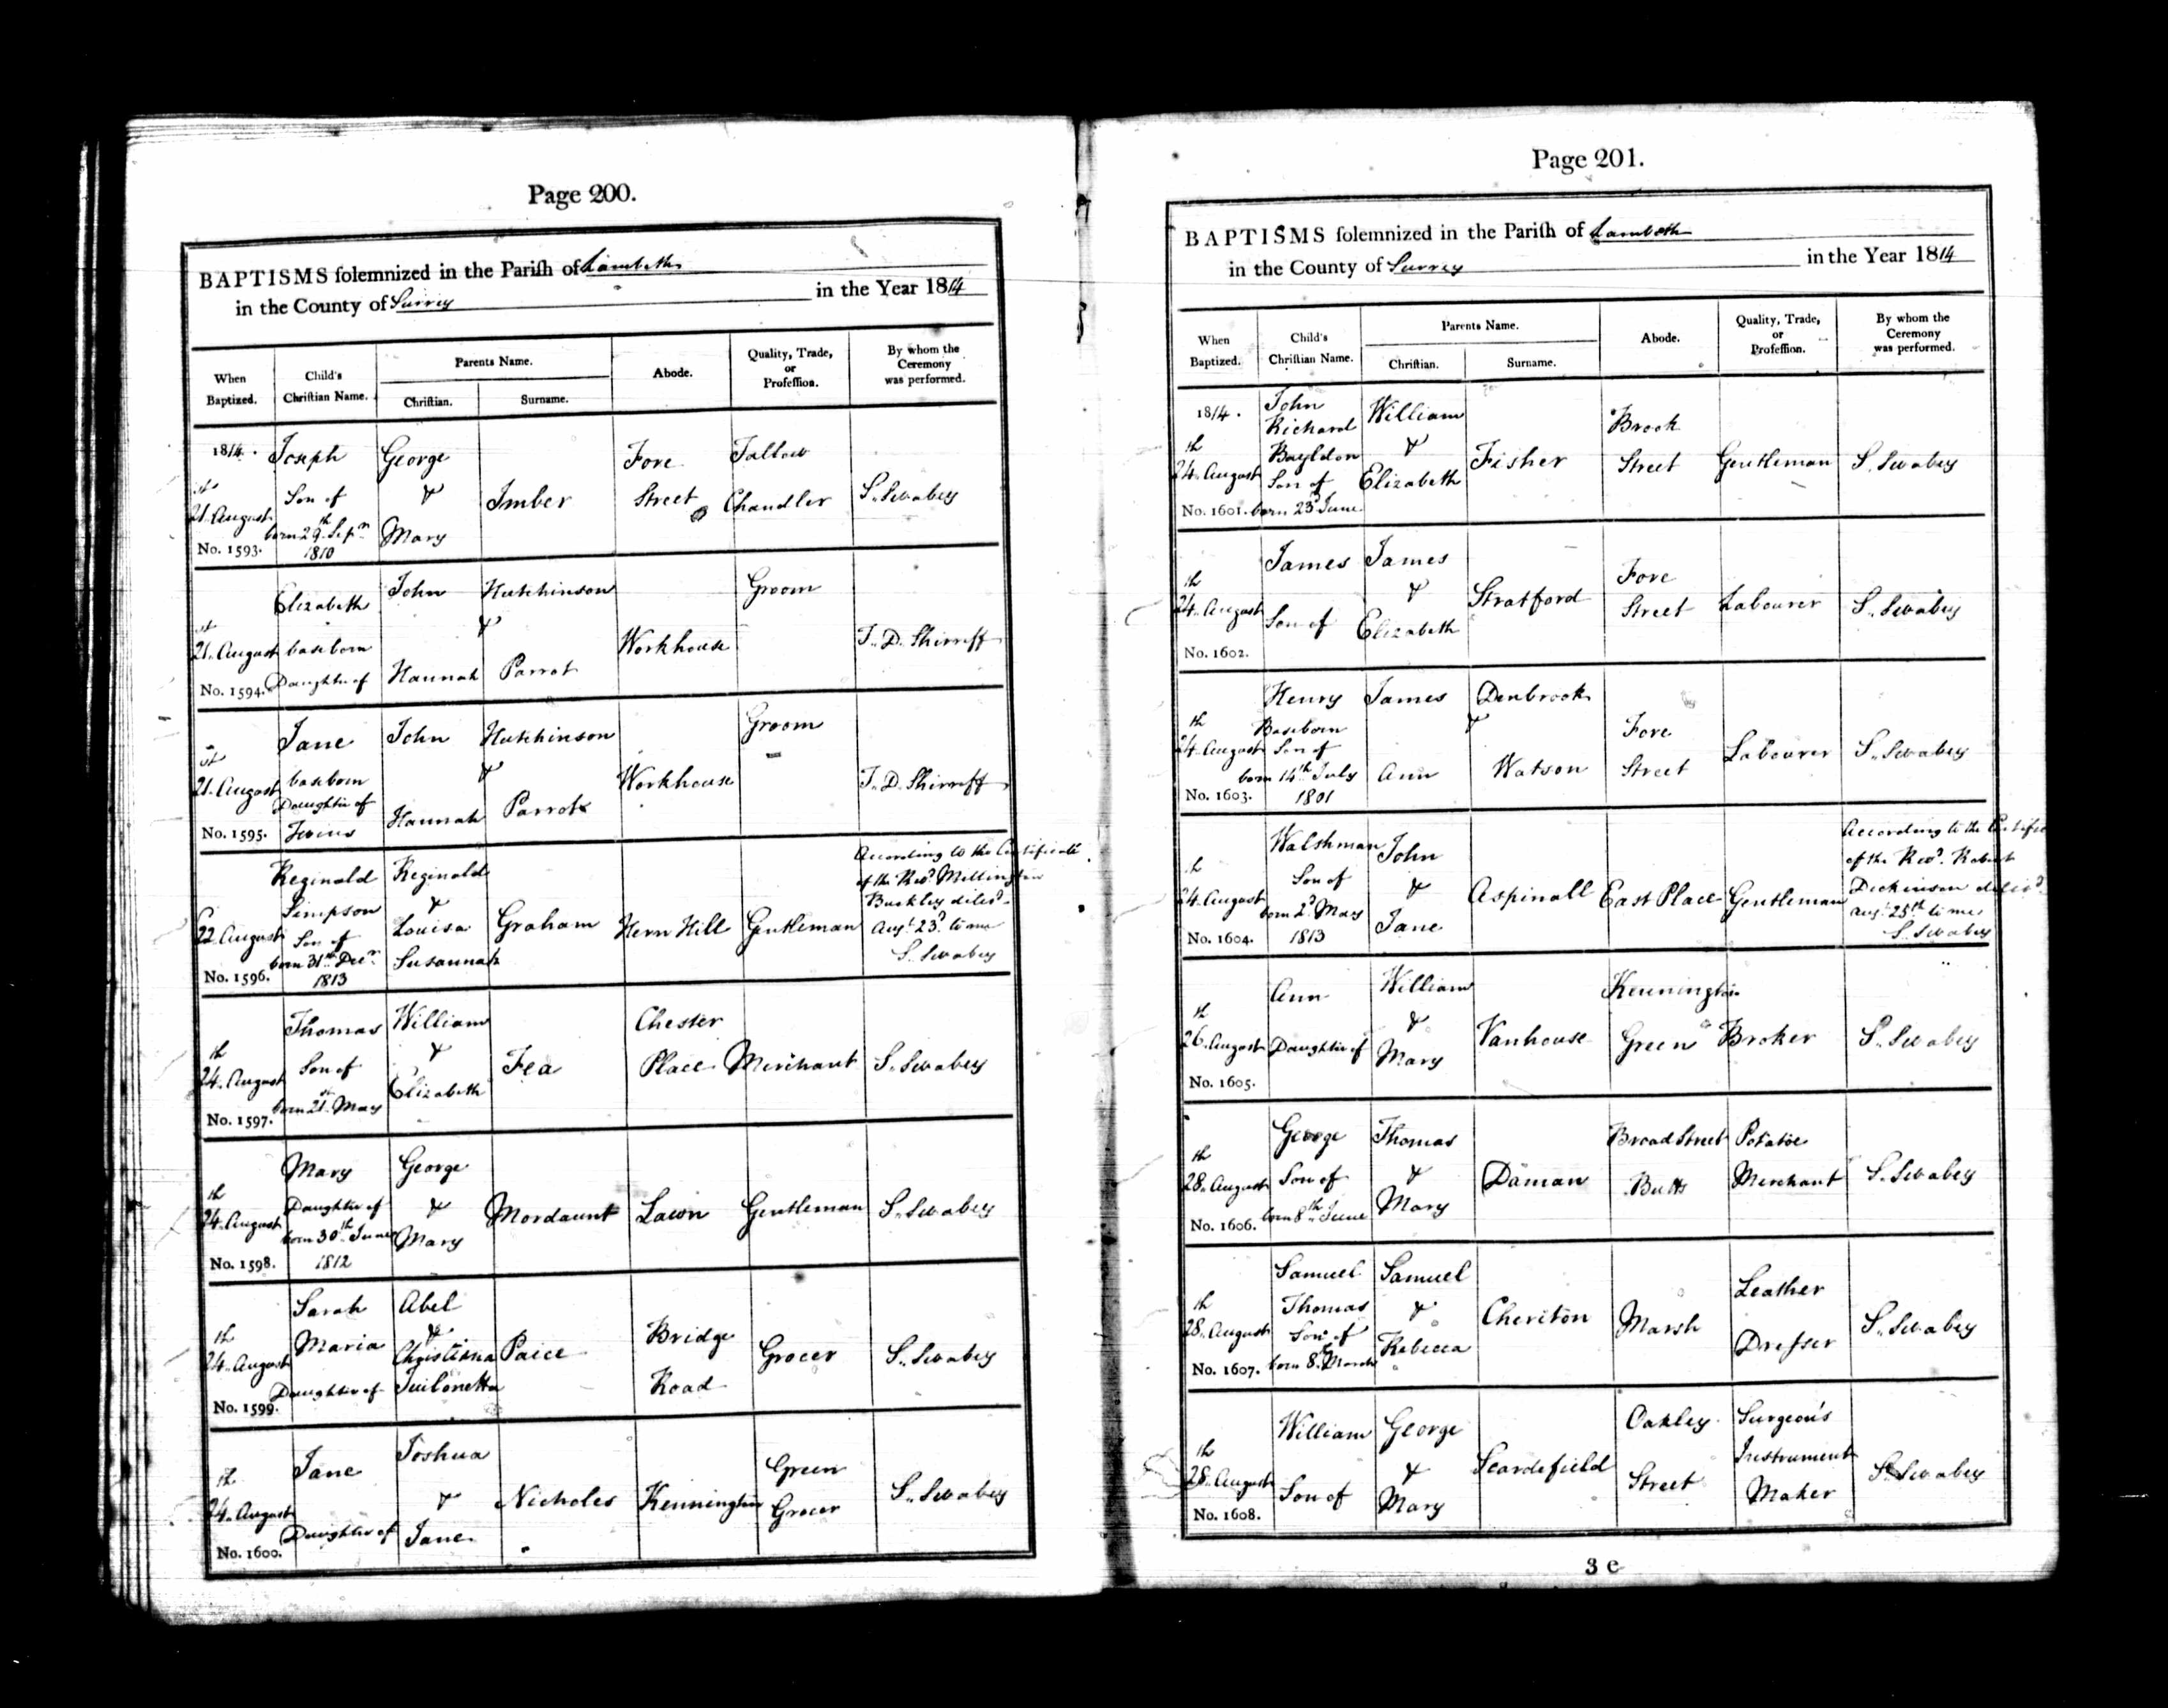 Page 200.
BAPTISMS solemnized in the Parish of Lambeth
in the County of Surrey in the Year 1814
When Baptized.
Child's Christian Name.
Parents Name.
Christian.
Surname.
Abode.
Quality, Trade, or Profession.
By whom the Ceremony was performed.
1814.
21st August
No. 1593.
Joseph
Son of
born 29th Sepr
1810
George
&
Mary
Imber
Fore
Street
Tallow
Chandler
S. Swabey
21st August
No. 1594.
Elizabeth
baseborn
Daughter of
John
Hutchinson
&
Hannah
Parrot
Workhouse
Groom
T. D. Shirreff
21st August
No. 1595.
Jane
baseborn
Daughter of
Twins
John
Hutchinson
&
Hannah
Parrot
Workhouse
Groom
T. D. Shirreff
22 August
No. 1596.
Reginald
Simpson
Son of
born 31st Decr
1813
Reginald
&
Louisa
Susannah
Graham
Hern Hill
Gentleman
According to the Certificate
of the Revd Millington
Buckley delivd
Augt 23d to me
S. Swabey
24th August
No. 1597.
Thomas
Son of
born 21st May
William
&
Elizabeth
Fea
Chester
Place
Merchant
S. Swabey
24th August
No. 1598.
Mary
Daughter of
born 30th June
1812
George
&
Mary
Mordaunt
Lawn
Gentleman
S. Swabey
24th August
No. 1599.
Sarah
Maria
Daughter of
Abel
&
Christiana
Paice
Bridge
Road
Grocer
S. Swabey
24th August
No. 1600.
Jane
Daughter of
Joshua
&
Jane
Nicholes
Kennington
Green
Grocer
S. Swabey
Page 201.
BAPTISMS solemnized in the Parish of Lambeth
in the County of Surrey in the Year 1814
When Baptized.
Child's Christian Name.
Parents Name.
Christian.
Surname.
Abode.
Quality, Trade, or Profession.
By whom the Ceremony was performed.
1814.
24th August
No. 1601.
John
Richard
Bayldon
Son of
born 23d June
William
&
Elizabeth
Fisher
Brook
Street
Gentleman
S. Swabey
24th August
No. 1602.
James
Son of
James
&
Elizabeth
Stratford
Fore
Street
Labourer
S. Swabey
24th August
No. 1603.
Henry
Baseborn
Son of
born 14th July
1801
James
Denbrook
&
Ann
Watson
Fore
Street
Labourer
S. Swabey
24th August
No. 1604.
Walshman
Son of
born 2d May
1813
John
&
Jane
Aspinall
East Place
Gentleman
According to the
of the Revd Robert
Dickinson
Augt 25th to me
S. Swabey
26th August
No. 1605.
Ann
Daughter of
William
&
Mary
Vanhouse
Kennington
Green
Broker
S. Swabey
28th August
No. 1606.
George
Son of
born 8th June
Thomas
&
Mary
Daman
Broad Street
Butts
Potatoe
Merchant
S. Swabey
28th August
No. 1607.
Samuel
Thomas
Son of
born 8th March
Samuel
&
Rebecca
Cheriton
Marsh
Leather
Dresser
S. Swabey
28th August
No. 1608.
William
Son of
George
&
Mary
Scardefield
Oakley
Street
Surgeon's
Instrument
Maker
S. Swabey
3 e